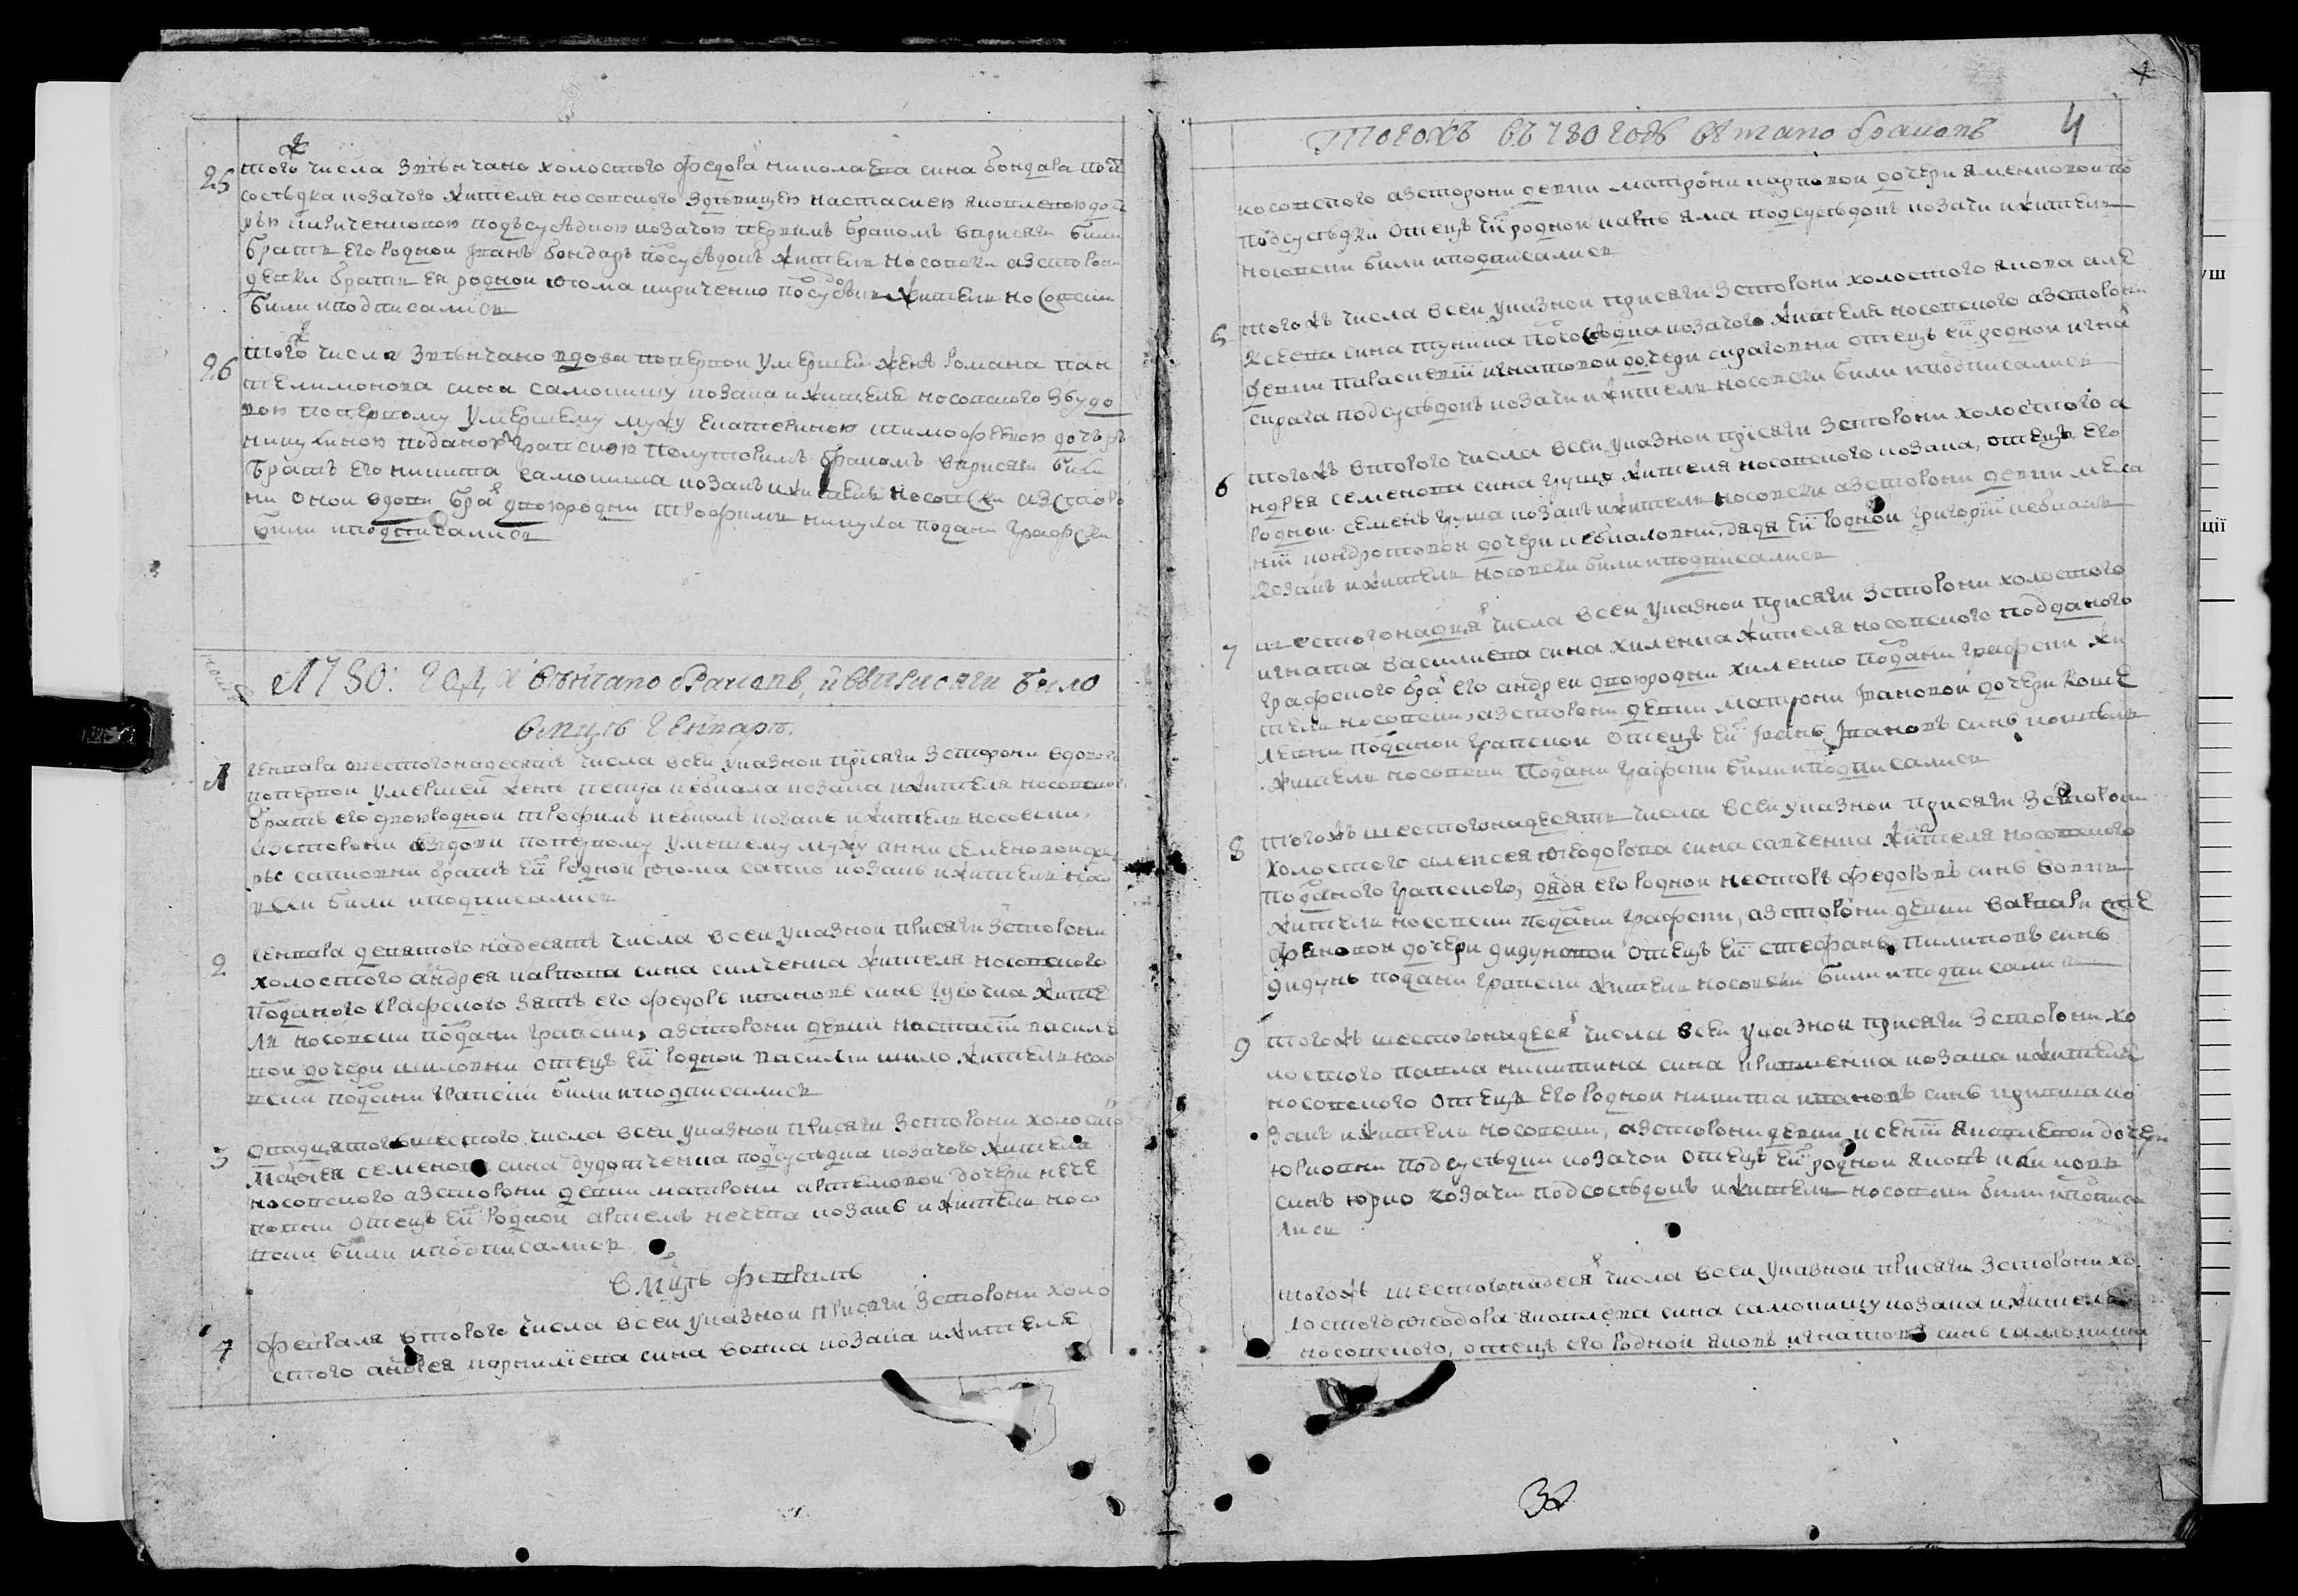 25 того ж числа звѣнчано холостого федора николаева сина бондара подъ
сосѣдка козачого жителя носовского здѣвицею настасиею яковлевою доч
рю кириченковою подъсусѣдкою козачою первимъ бракомъ вприсяги били
братъ его родной іванъ бондаръ посусѣдокъ житель носовски азсторони
девки братъ ея родной ѳома кириченко подсусѣдокъ житель носовски
били иподписалися
26 того ж числа звѣнчано вдова поперво умершей женѣ романа пан
телимонова сина самокишу козака ижителя носовского звдо
вою попервому умершему мужу екатериною тимофѣевою дочърѣ
микулиною поданою грапскою полуторимъ бракомъ вприсяги били
братъ его никита самокиша козакъ ижитель носовски азсторо
ни оной вдови бра двоюродни трофимъ микула подани графски
били иподписалися
1780: год вѣнчано браковъ, и впрысяги било
вмцѣ генварѣ.
1 генвара шестогонадесять числа всей указной присяги зсторони вдового
поперкой умершей женѣ кебкала козака ижителя носовского
братъ его двоюродной трофимъ кебкалъ козакъ ижитель носовски,
азсторони вдови попервому умершему мужу анни семеновой до
рѣ сапковни братъ ей родной ѳома сапко козакъ ижитель носо
вски били иподписалися
2 генвара девятого надесять числа всей указной присяги зсторони
холостого андрея карпова сина силченка жителя носовского
поданого графского зять его федоръ ивановъ синъ губочка жите
ль носовски подани грапски, азсторони девки настасіи василе
вой дочери шиловни отецъ ей родной василий шило житель носо
вски подани грапски били иподписалися
3 двадцятогошестого числа всей указной присяги зсторони холосто
матѳея семенова сина дудоченка подсусѣдка козачого жителя
носовского азсторони девки матрони артемовой дочери нече
повни отецъ ей родной артемъ нечепа козакъ ижитель носо
вски били иподписалися
вмцѣ февралѣ
4 февраля второго числа всей указной присяги зсторони холо
стого андрея корнилиева сина вовка козака ижителя
тогожъ 1780 годѣ вѣнчано браковъ 4
носовского азсторони девки матрони карповой дочери яменковой по
подсусѣдки отецъ ей родной карпъ яма подсусѣдокъ козачи ижитель
носовски били иподписалися
5 тогожъ числа всей указной присяги зсторони холостого якова але
ксеева сина тукина подсосѣдка козачого жителя носовского азсторони
девки параскевіи игнатовой дочери сираговни отецъ ей родной игна
сирага подсусѣдокъ козачи ижитель носовски били иподписалися
6 тогожъ второго числа всей указной присяги зсторони холостого а
ндрея семенова сина груша жителя носовского козака, отецъ его
родной семенъ груша козакъ ижитель носовски азсторони девки мела
ніи кондратовой дочери кебкаловни, дядя ей родной григорій кебкалъ
козакъ ижитель носовски били иподписалися
7 шестогонадця числа всей указной присяги зсторони холостого
игната василиева сина хиленка жителя носовского подданого
графского бра его андрей двоюродни хиленко подани графски жи
тель носовски, азсторони девки матрони ивановой дочери коше
левни поданой грапской отецъ ей іванъ івановъ синъ кошель
житель носовски подани графски били иподписалися
8 тогожъ шестогонадесять числа всей указной присяги зсторони
холостого алексея ѳеодорова сина савченка жителя носовского
поданого грапского, дядя его родной несторъ федоровъ синъ вовкъ
житель носовски подани графски, азсторони девки варвари сте
фановой дочери дидуновой отецъ ей стефанъ пилиповъ синъ
дидунъ подани грапски житель носовски били иподписалися
9 тогожъ шестогонадеся числа всей указной присяги зсторони хо
лостого павла никитина сина притменка козака ижителя
носовского отецъ его родной никита ивановъ синъ притима ко
закъ ижитель носовски, азсторони девки ксеніи яковлевой дочери
юрковни подсусѣдки козачой отецъ ей родной яковъ
синъ юрко козачи подсосѣдокъ ижитель носовски били иподписа
лися
тогожъ шестогонадеся числа всей указной присяги зсторони хо
лостого ѳеодора яковлева сина самокишу козака ижителя
носовского, отецъ его родной яковъ игнатовъ синъ самокиша